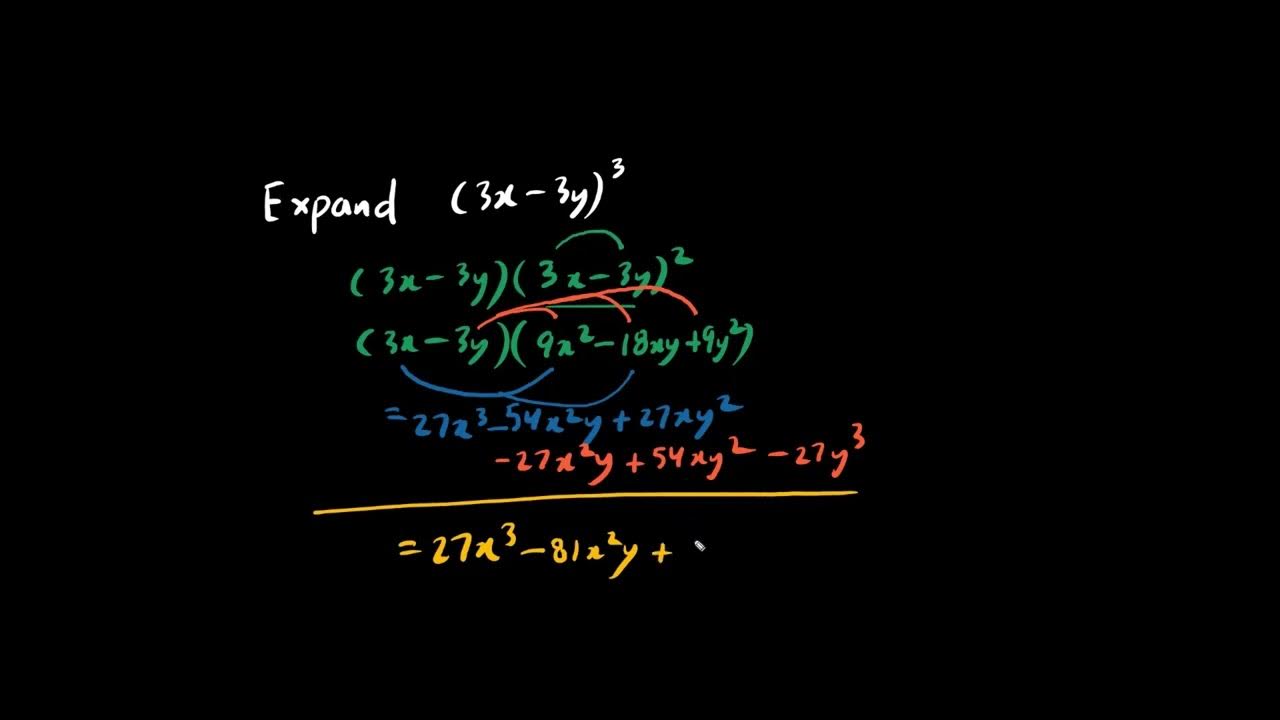 Expand (3x-3y)³
(3x-3y)(3x-3y)²
(3x-3y)(9x²-18xy+9y²)
=27x³-54x²y+27xy²
-27x²y+54xy²-27y³
=27x³-81x²y+